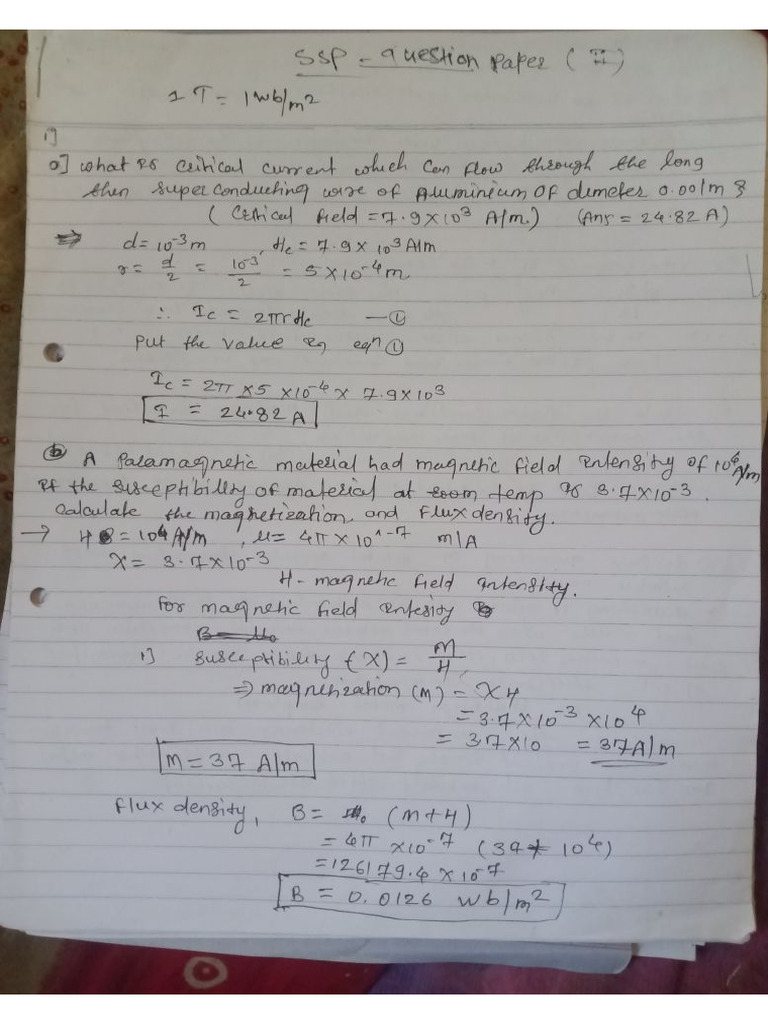 SSP - Question Paper (II)
1 T = 1 wb/m²
1)
a] what is critical current which can flow through the long
then super conducting wire of Aluminium of dimeter 0.001m &
( Critical field = 7.9 × 10³ A/m.) (Ans = 24.82 A)
⇒ d = 10⁻³ m , Hc = 7.9 × 10³ A/m
r = d/2 = 10⁻³/2 = 5 × 10⁻⁴ m
∴ Ic = 2πrHc —①
Put the value in eqⁿ ①
Ic = 2π × 5 × 10⁻⁴ × 7.9 × 10³
I = 24.82 A
(b) A Paramagnetic material had magnetic field intensity of 10⁴ A/m
If the susceptibility of material at room temp is 3.7 × 10⁻³.
calculate the magnetization and flux density.
→ H = 10⁴ A/m , μ = 4π × 10^-7 m/A
X = 3.7 × 10⁻³
H - magnetic field intensity.
For magnetic field intesity
1) susceptibility (X) = M/H
⇒ magnetization (M) = XH
= 3.7 × 10⁻³ × 10⁴
= 3.7 × 10 = 37 A/m
M = 37 A/m
Flux density, B = μ₀ (M + H)
= 4π × 10⁻⁷ (37 + 10⁴)
= 126179.4 × 10⁻⁷
B = 0.0126 wb/m²